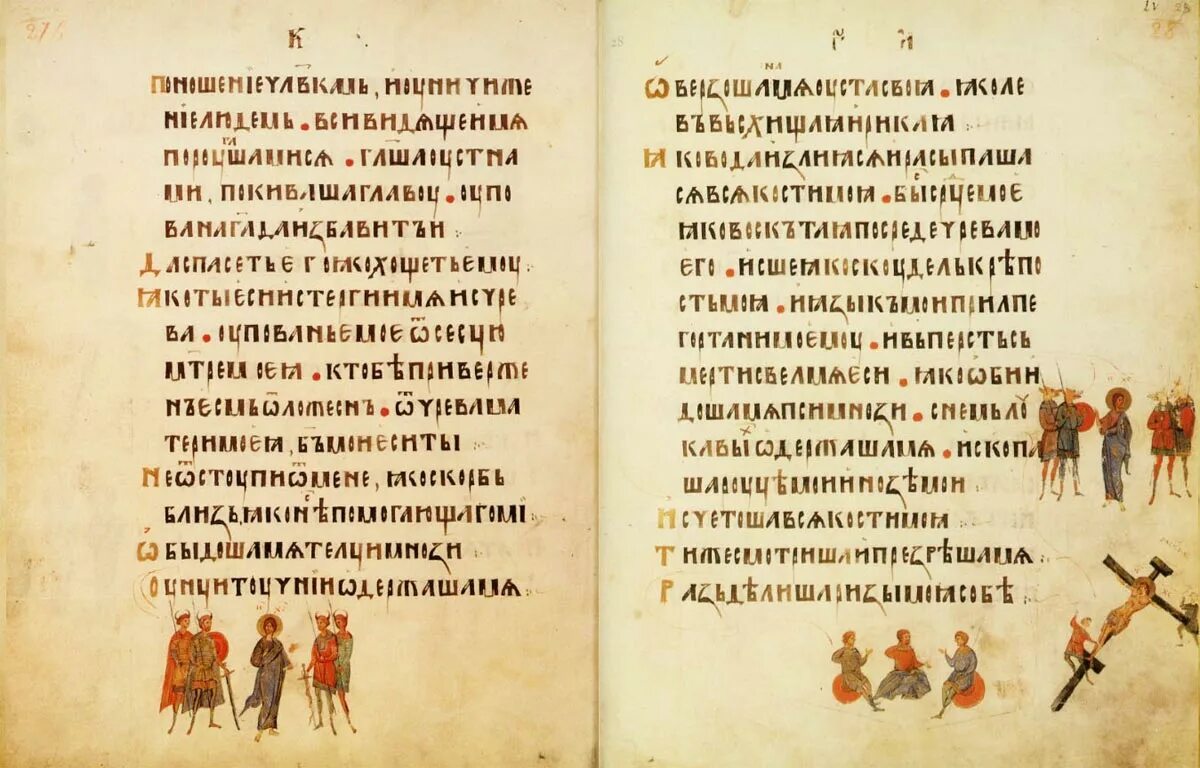 К
поношениеч҃лвкмъ, иоуничиже
ниелюдемъ • всивидящеимя
пороугашамися • г҃лашаоустна
ми, покивашаглавоу • оупо
ванаг҃адаизбавитъи
даспасетьегоꙗкохощетьемоу
ꙗкотыесиистергиимяисчре
ва • оупованьемоеѿсесцю
мт҃ремоеꙗ • ктобѣприверже
нъесмьѿложеснъ • ѿчревама
теримоеꙗ, б҃ъмоиеситы
неѿстоупиѿмене, ꙗкоскорбь
близъ, ꙗконѣпомогающагомі
ѡбыдошамятелцимнози
оуницитоучнииѡдержашамя
ѿверзошанамяоустасвоꙗ • ꙗколе
въвъсхищаꙗирикаꙗ
ꙗководаизлиꙗсяирасыпаша
сявсякостимоꙗ • быс҃рдцемое
ꙗковоскътаꙗпосредечревамо
его • исшеꙗкоскоуделькрѣпо
стьмоꙗ • иꙗзыкъмоиприлпе
гортанимоемоу • ивъперстьсъ
мертисвелмяеси • ꙗкоѡбыи
дошамяпсимнози • снемълоу
кавыхѡдержашамя • ископа
шароуцѣмоиинозѣмои
исчетошавсякостимоꙗ
тижесмотришаипрезрѣшамя
раздѣлишаризымоꙗсобѣ
28